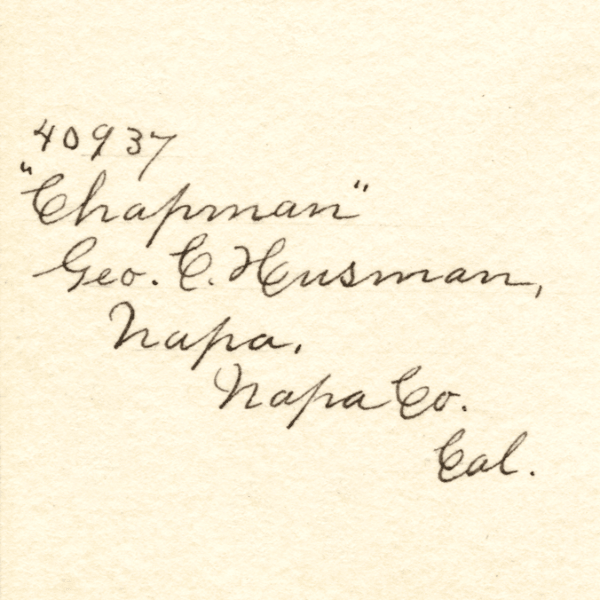 40937
"Chapman"
Geo. C. Husman,
Napa,
Napa Co.
Cal.